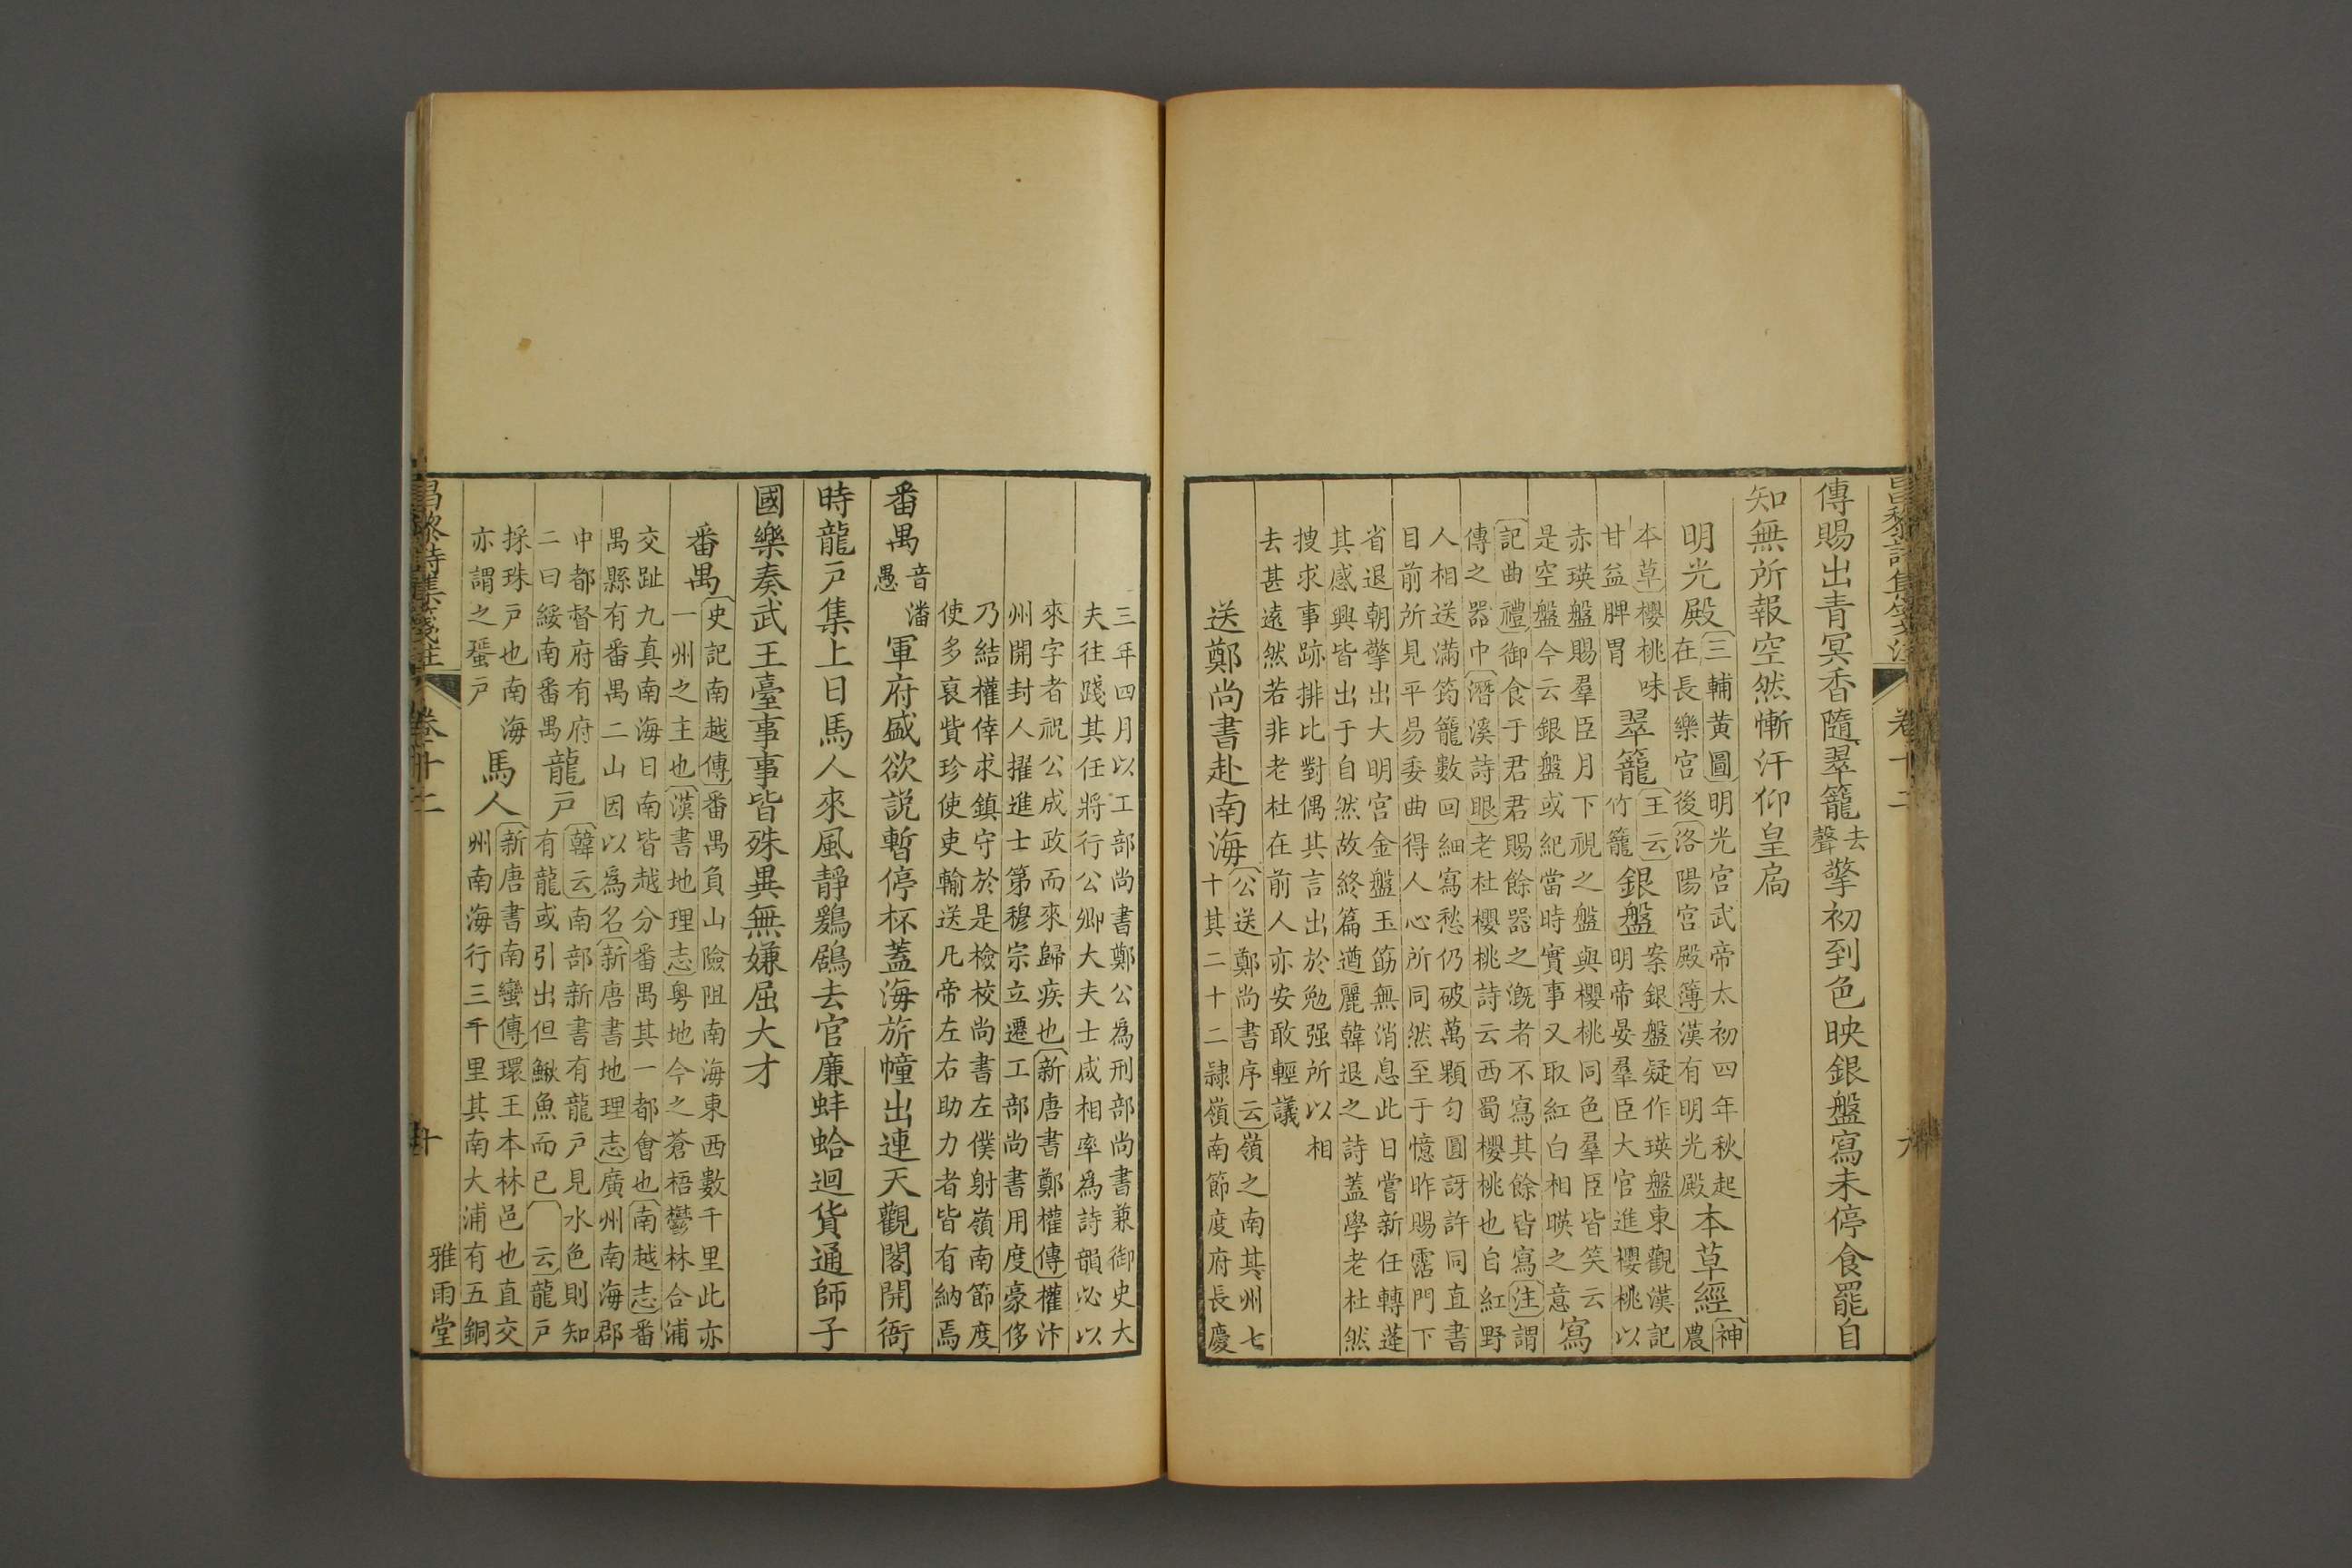 昌黎詩集箋注 卷十二
傳賜出青冥香隨翠籠去聲擎初到色映銀盤寫未停食罷自
知無所報空然慚汗仰皇扃
明光殿三輔黃圖明光宮武帝太初四年秋起
在長樂宮後洛陽宮殿簿漢有明光殿本草經神農
本草櫻桃味
甘益脾胃翠籠王云竹籠銀盤案銀盤疑作瑛盤東觀漢記
明帝晏羣臣大官進櫻桃以
赤瑛盤賜羣臣月下視之盤與櫻桃同色羣臣皆笑云
是空盤今云銀盤或紀當時實事又取紅白相暎之意寫
記曲禮御食于君君賜餘器之漑者不寫其餘皆寫注謂
傳之器中潛溪詩眼老杜櫻桃詩云西蜀櫻桃也自紅野
人相送滿筠籠數回細寫愁仍破萬顆勻圓訝許同直書
目前所見平易委曲得人心所同然至于憶昨賜霑門下
省退朝擎出大明宮金盤玉筯無消息此日嘗新任轉蓬
其感興皆出于自然故終篇遒麗韓退之詩蓋學老杜然
搜求事跡排比對偶其言出於勉强所以相
去甚遠然若非老杜在前人亦安敢輕議
送鄭尚書赴南海公送鄭尚書序云嶺之南其州七
十其二十二隷嶺南節度府長慶
三年四月以工部尚書鄭公爲刑部尚書兼御史大
夫往踐其任將行公卿大夫士咸相率爲詩韻必以
來字者祝公成政而來歸疾也新唐書鄭權傳權汴
州開封人擢進士第穆宗立遷工部尚書用度豪侈
乃結權倖求鎮守於是檢校尚書左僕射嶺南節度
使多裒貲珍使吏輸送凡帝左右助力者皆有納焉
番禺音潘愚軍府盛欲説暫停杯蓋海旂幢出連天觀閣開衙
時龍戸集上日馬人來風靜鷄鶋去官廉蚌蛤迴貨通師子
國樂奏武王臺事事皆殊異無嫌屈大才
番禺史記南越傳番禺負山險阻南海東西數千里此亦
一州之主也漢書地理志粵地今之蒼梧鬱林合浦
交趾九真南海日南皆越分番禺其一都會也南越志番
禺縣有番禺二山因以爲名新唐書地理志廣州南海郡
中都督府有府
二曰綏南番禺龍戸韓云南部新書有龍戸見水色則知
有龍或引出但鰍魚而已 云龍戸
採珠戸也南海
亦謂之蜑戸馬人新唐書南蠻傳環王本林邑也直交
州南海行三千里其南大浦有五銅
雅雨堂